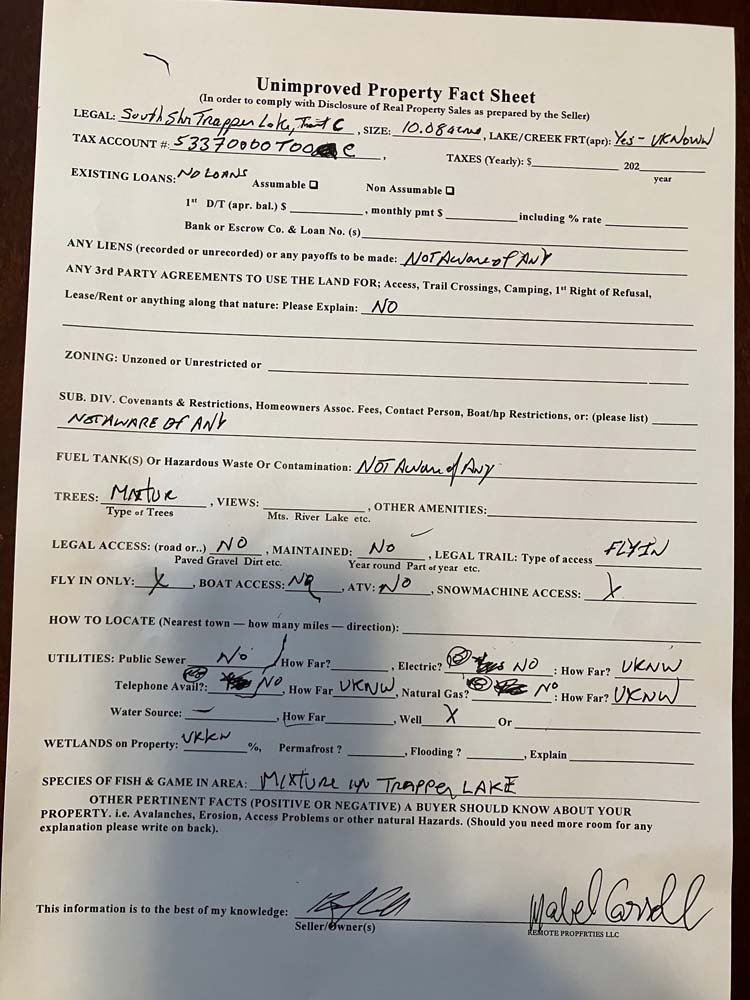 Unimproved Property Fact Sheet
(In order to comply with Disclosure of Real Property Sales as prepared by the Seller)
LEGAL: South Shr Trapper Lake, Tract C , SIZE: 10.08 acre, LAKE/CREEK FRT(apr): Yes - UKNOWN
TAX ACCOUNT #: 53370000T00 C , TAXES (Yearly): $ 202
year
EXISTING LOANS: NO LOANS Assumable ☐ Non Assumable ☐
1st D/T (apr. bal.) $ , monthly pmt $ including % rate
Bank or Escrow Co. & Loan No. (s)
ANY LIENS (recorded or unrecorded) or any payoffs to be made: NOT Aware of ANY
ANY 3rd PARTY AGREEMENTS TO USE THE LAND FOR; Access, Trail Crossings, Camping, 1st Right of Refusal,
Lease/Rent or anything along that nature: Please Explain: NO
ZONING: Unzoned or Unrestricted or
SUB. DIV. Covenants & Restrictions, Homeowners Assoc. Fees, Contact Person, Boat/hp Restrictions, or: (please list)
NOT AWARE OF ANY
FUEL TANK(S) Or Hazardous Waste Or Contamination: NOT Aware of Any
TREES: Mixtur , VIEWS: , OTHER AMENITIES:
Type of Trees Mts. River Lake etc.
LEGAL ACCESS: (road or..) NO , MAINTAINED: No , LEGAL TRAIL: Type of access FLY IN
Paved Gravel Dirt etc. Year round Part of year etc.
FLY IN ONLY: X , BOAT ACCESS: NO , ATV: NO , SNOWMACHINE ACCESS: X
HOW TO LOCATE (Nearest town — how many miles — direction):
UTILITIES: Public Sewer No How Far? , Electric? NO : How Far? UKNW
Telephone Avail?: NO , How Far UKNW, Natural Gas? NO : How Far? UKNW
Water Source: — , How Far , Well X Or
WETLANDS on Property: UKKN %, Permafrost ? , Flooding ? , Explain
SPECIES OF FISH & GAME IN AREA: MIXTURE in TRAPPER LAKE
OTHER PERTINENT FACTS (POSITIVE OR NEGATIVE) A BUYER SHOULD KNOW ABOUT YOUR
PROPERTY. i.e. Avalanches, Erosion, Access Problems or other natural Hazards. (Should you need more room for any
explanation please write on back).
This information is to the best of my knowledge: Mabel Carroll
Seller/Owner(s) REMOTE PROPERTIES LLC